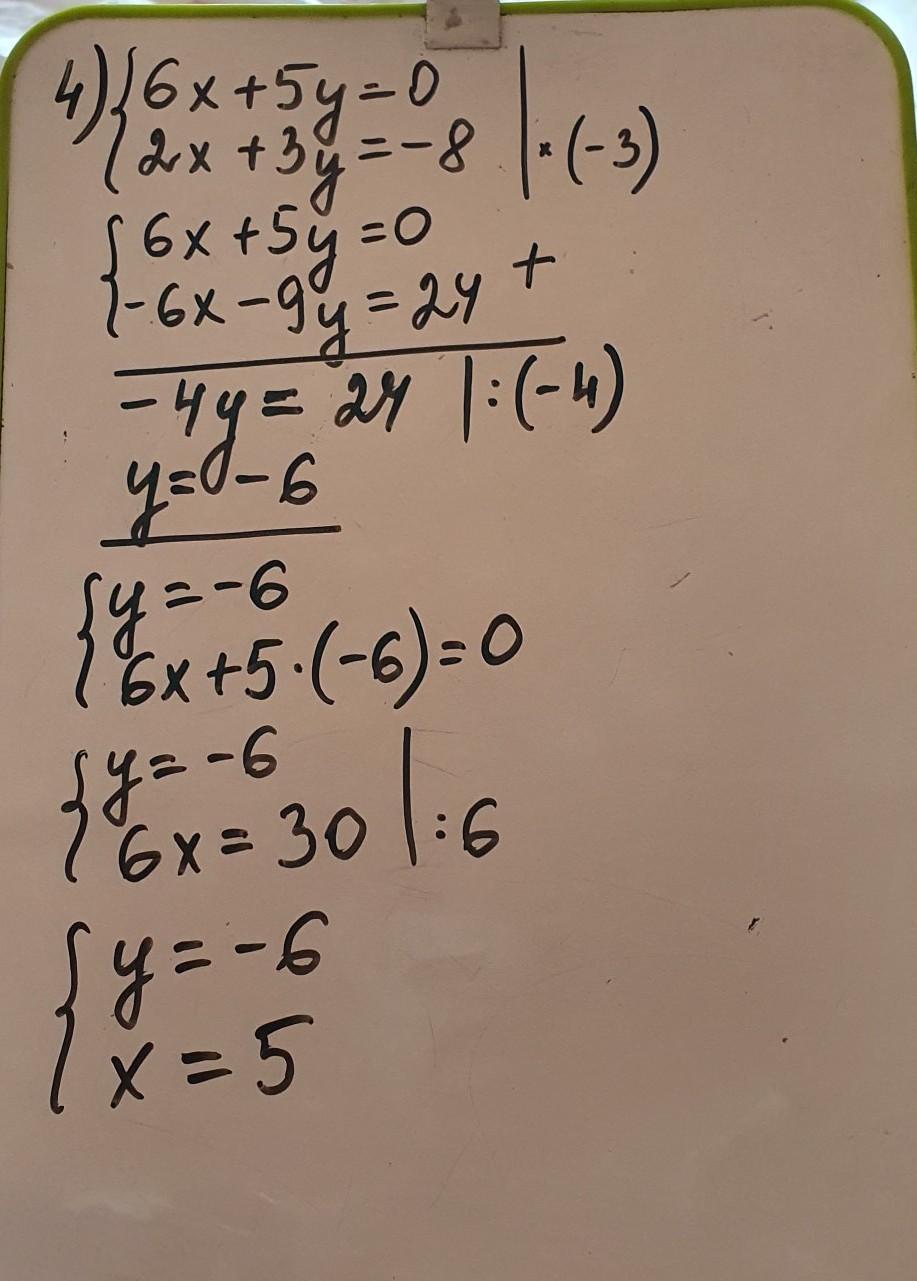 4) { 6x + 5y = 0
2x + 3y = -8 | × (-3)
{ 6x + 5y = 0
-6x - 9y = 24 +
-4y = 24 | : (-4)
y = -6
{ y = -6
6x + 5 · (-6) = 0
{ y = -6
6x = 30 | : 6
{ y = -6
x = 5